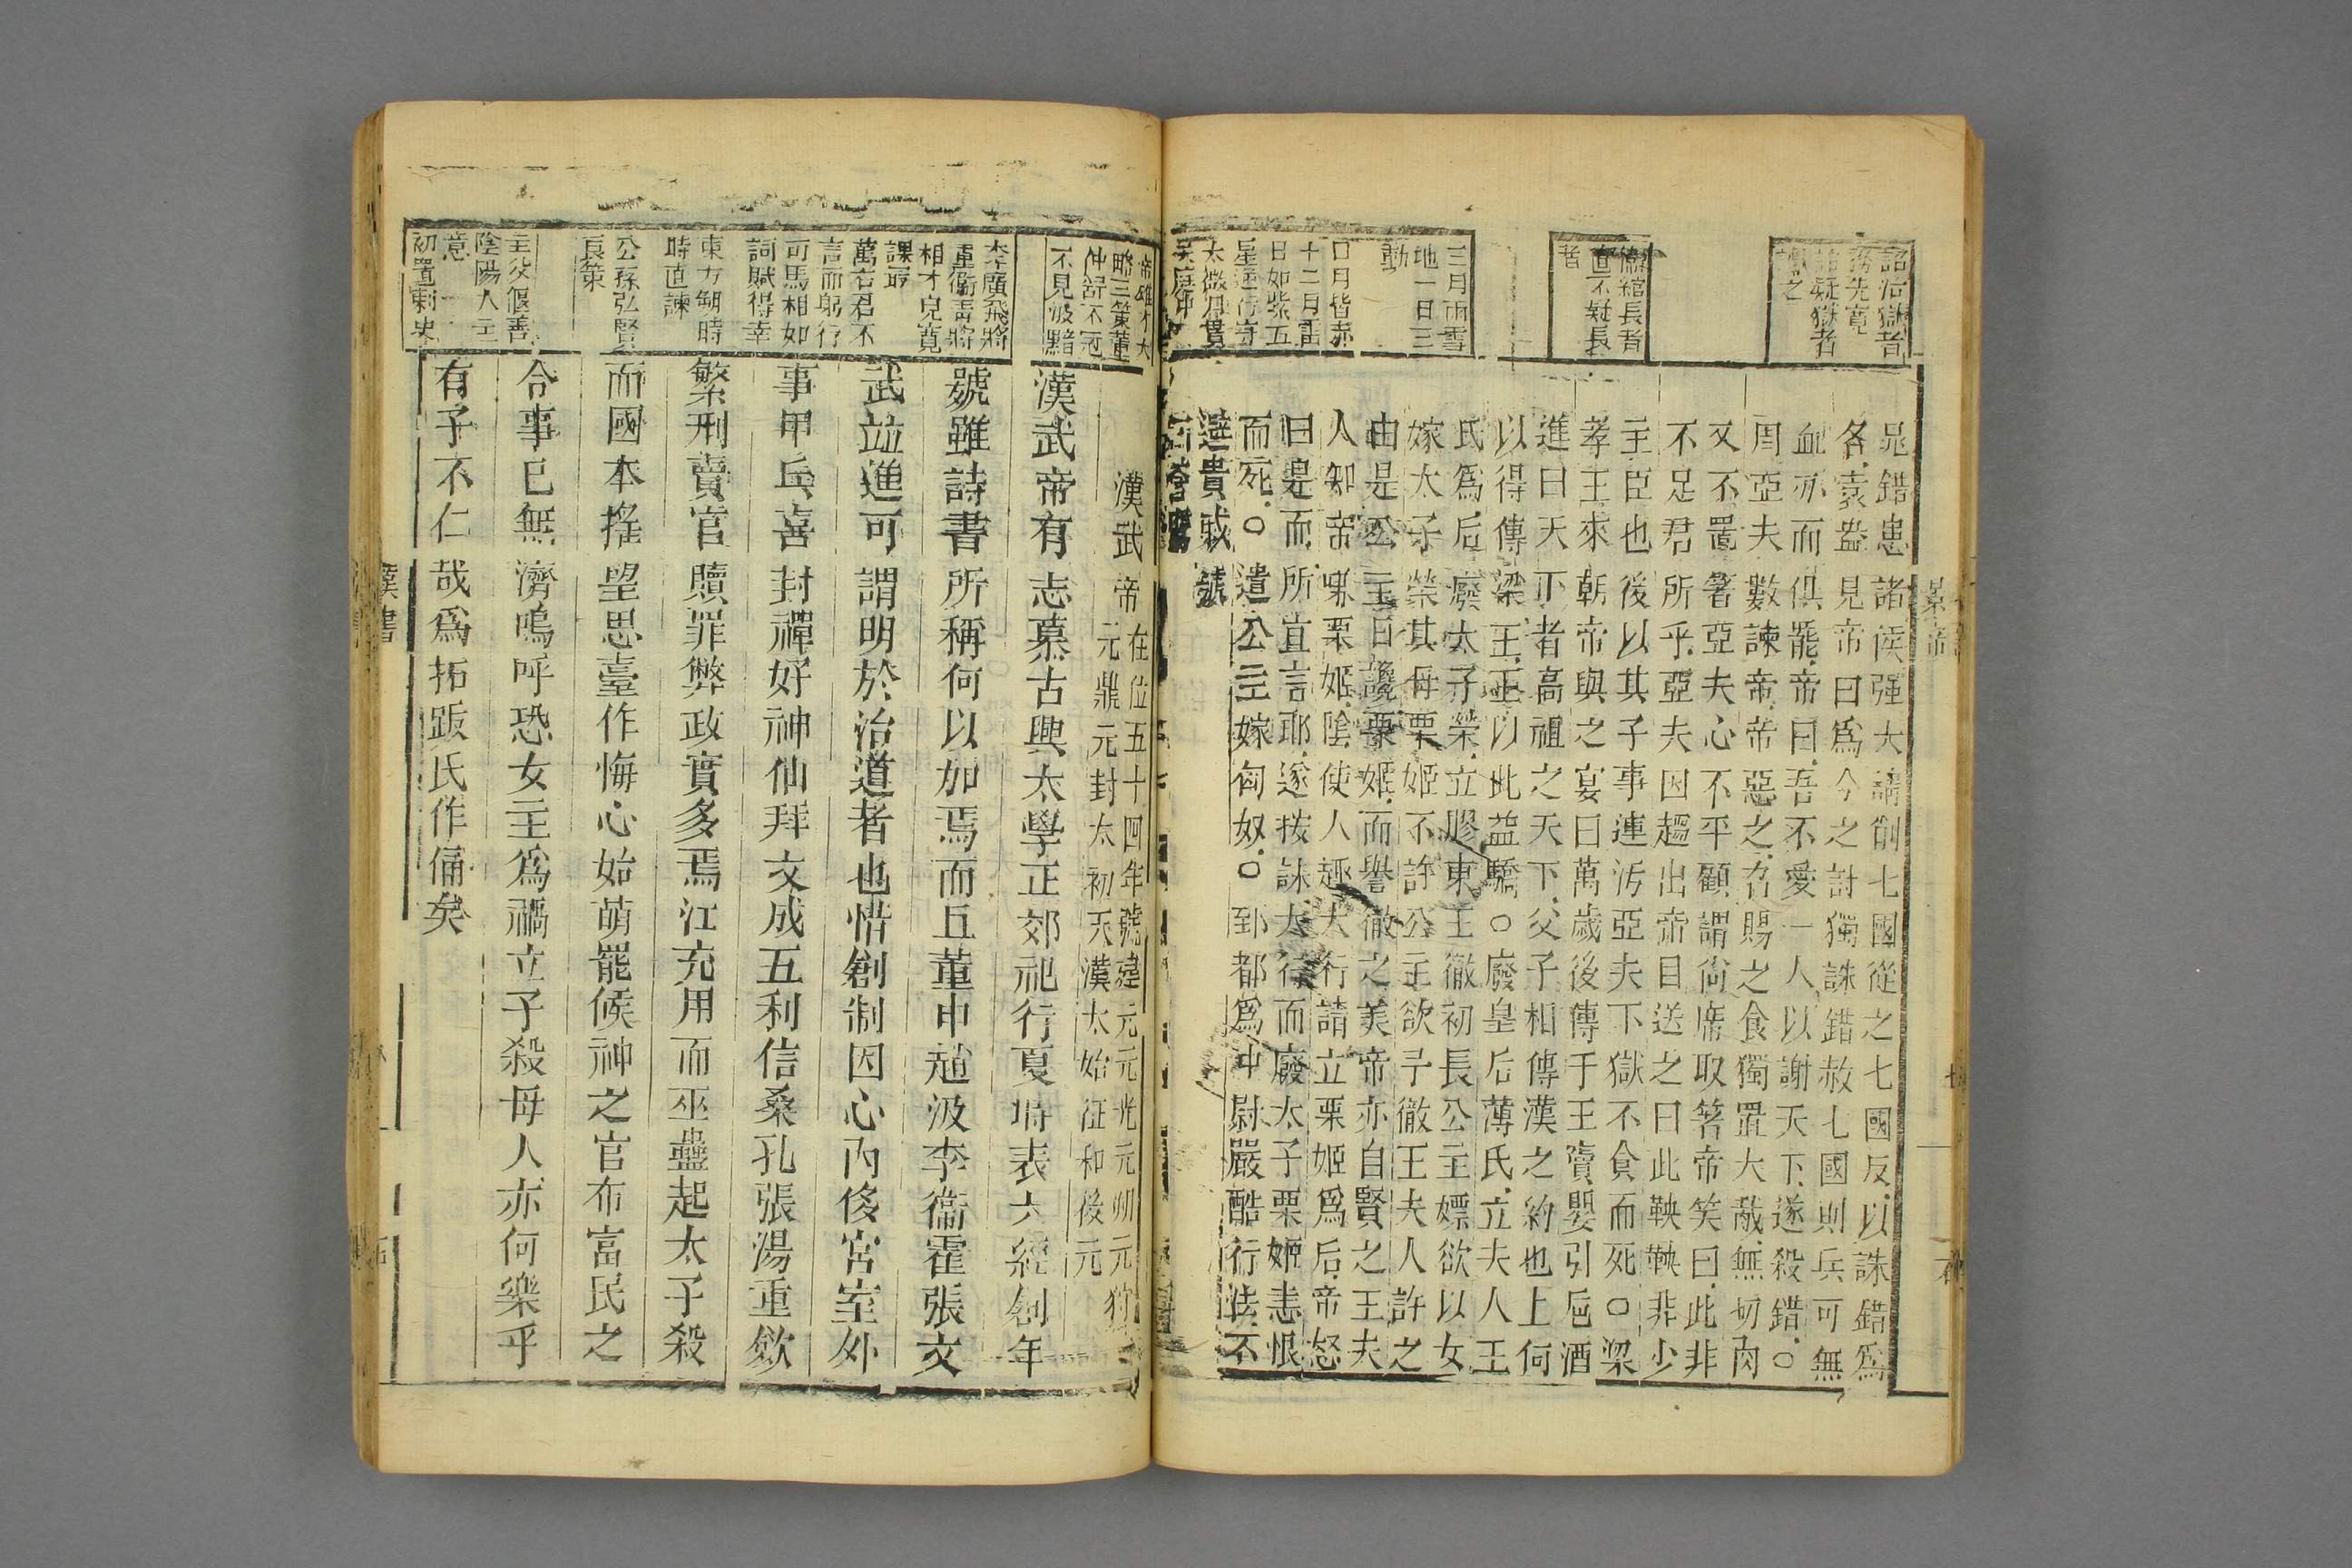 詔治獄者
務先寬
詔疑獄者
讞之
衞綰長者
直不疑長
者
三月雨雪
地一日三
動
日月皆赤
十二月雷
日如紫五
星逆行守
太微月貫
天廷中
晁錯患諸侯强大請削七國從之七國反以誅錯爲
名袁盎見帝曰爲今之計獨誅錯赦七國則兵可無
血刃而俱罷帝曰吾不愛一人以謝天下遂殺錯○
周亞夫數諫帝帝惡之召賜之食獨置大胾無切肉
又不置箸亞夫心不平顧謂尚席取箸帝笑曰此非
不足君所乎亞夫因趨出帝目送之曰此鞅鞅非少
主臣也後以其子事連汚亞夫下獄不食而死○梁
孝王來朝帝與之宴曰萬歲後傳于王竇嬰引巵酒
進曰天下者高祖之天下父子相傳漢之約也上何
以得傳梁王王以此益驕○廢皇后薄氏立夫人王
氏爲后廢太子榮立膠東王徹初長公主嫖欲以女
嫁太子榮其母栗姬不許公主欲子徹王夫人許之
由是公主日讒栗姬而譽徹之美帝亦自賢之王夫
人知帝嗛栗姬陰使人趣大行請立栗姬爲后帝怒
曰是而所宜言耶遂按誅大行而廢太子栗姬恚恨
而死○遣公主嫁匈奴○郅都爲中尉嚴酷行法不
避貴戚號
曰蒼鷹
景帝
帝雄才大
略三策董
仲舒不冠
不見汲黯
李廣飛將
重衞靑將
相才兒寬
課最
萬石君不
言而躬行
司馬相如
詞賦得幸
東方朔時
時直諫
公孫弘賢
良策
主父偃善
陰陽人主
意
初置刺史
漢武帝在位五十四年號建元元光元朔元狩
元鼎元封太初天漢太始征和後元
漢武帝有志慕古興太學正郊祀行夏時表六經創年
號雖詩書所稱何以加焉而丘董申趙汲李衞霍張文
武竝進可謂明於治道者也惜創制因心內侈宮室外
事甲兵喜封禪好神仙拜文成五利信桑孔張湯重斂
繁刑賣官贖罪弊政實多焉江充用而巫蠱起太子殺
而國本搖望思臺作悔心始萌罷候神之官布富民之
令事已無濟嗚呼恐女主爲禍立子殺母人亦何樂乎
有子不仁哉爲拓跋氏作俑矣
漢書